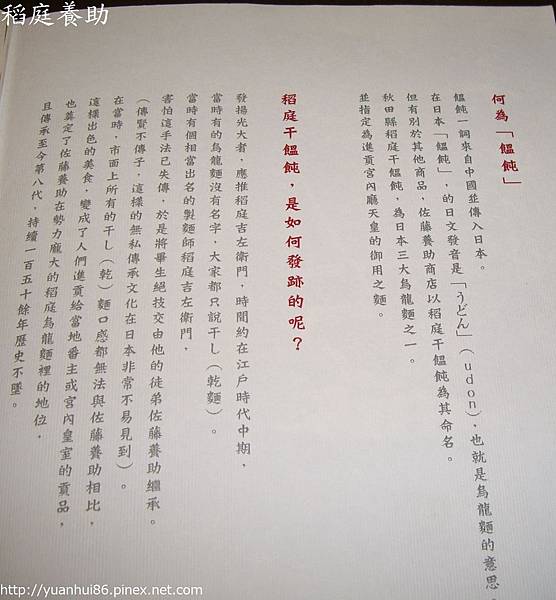 稻庭養助
何為「饂飩」
饂飩一詞來自中國並傳入日本。
在日本「饂飩」，的日文發音是「うどん」（udon），也就是烏龍麵的意思。
但有別於其他商品，佐藤養助商店以稻庭干饂飩為其命名。
秋田縣稻庭干饂飩，為日本三大烏龍麵之一。
並指定為進貢宮內廳天皇的御用之麵。
稻庭干饂飩，是如何發跡的呢？
發揚光大者，應推稻庭吉左衛門，時間約在江戶時代中期，
當時有的烏龍麵沒有名字，大家都只說干し（乾麵）。
當時有個相當出名的製麵師稻庭吉左衛門，
害怕這手法已失傳，於是將畢生絕技交由他的徒弟佐藤養助繼承。
（傳賢不傳子，這樣的無私傳承文化在日本非常不易見到）。
在當時，市面上所有的干し（乾）麵口感都無法與佐藤養助相比，
這樣出色的美食，變成了人們進貢給當地番主或宮內皇室的貢品，
也奠定了佐藤養助在勢力龐大的稻庭烏龍麵裡的地位，
且傳承至今第八代，持續一百五十餘年歷史不墜。
http://yuanhui86.pinex.net.com